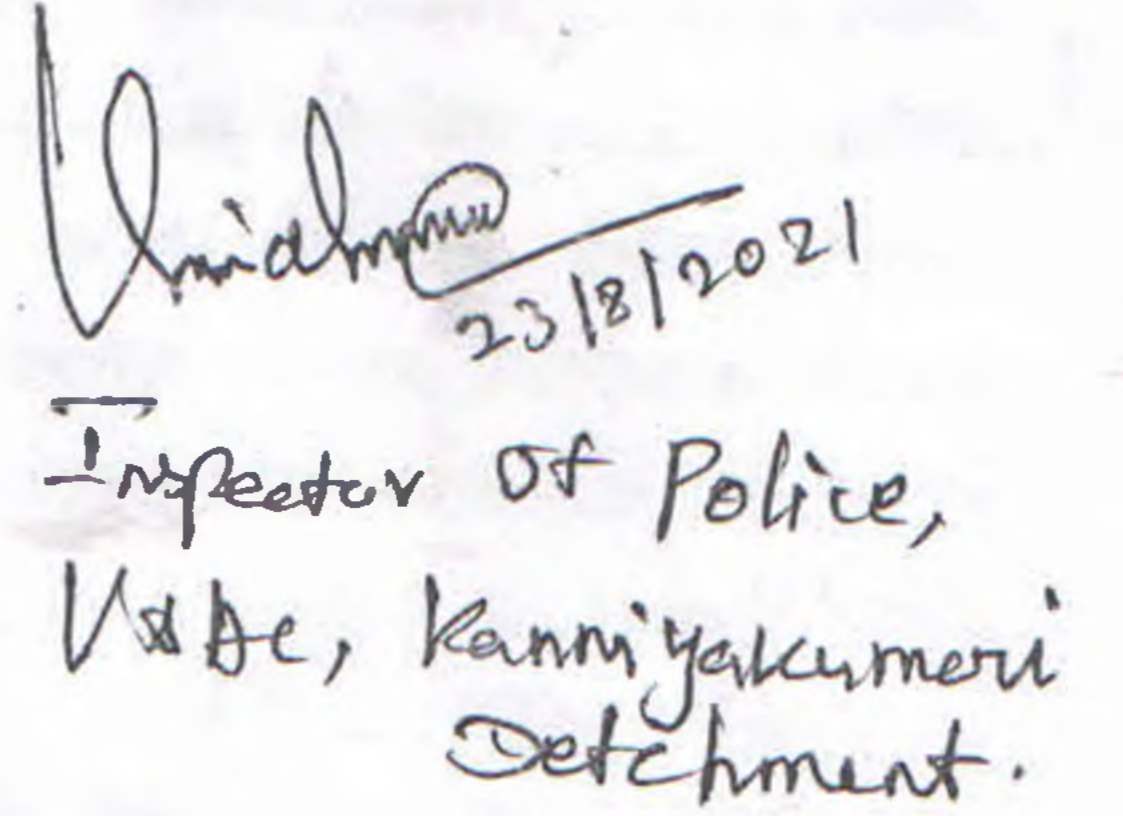 23/8/2021
Inspector of Police,
V&AC, Kanniyakumari
Detchment.